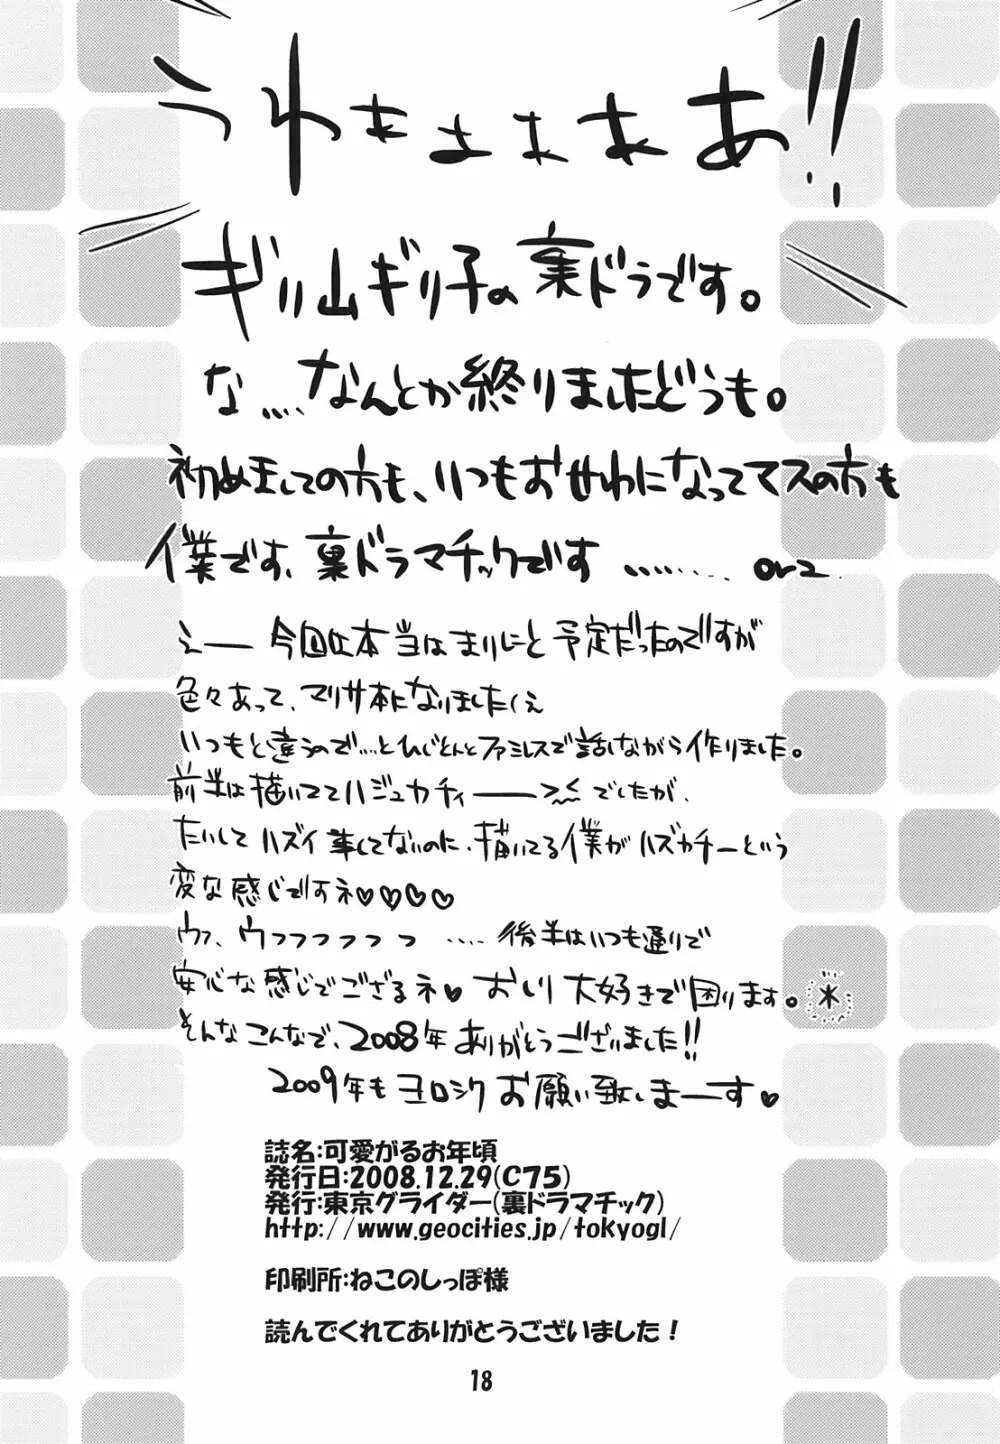 うわぁぁぁぁあ!!
ギリ山ギリ子の裏ドラです。
な....なんとか終りましたどうも。
初めましての方も、いつもおせわになってマスの方も
僕です、裏ドラマチックです ......... orz
えー 今回は本当はまりにと予定だったのですが
色々あって、マリサ本になりましたくぇ
いつもと違うので....とひじとんとファミレスで話しながら作りました。
前半は描いててハジュカチィーーでしたが、
たいしてハズイ事してないのに、描いてる僕がハズカチーという
変な感じですネ♥♥♥♥
ウァ、ウフフフフフフ .... 後半はいつも通りで
安心な感じでございるネ♥ おしり大好きで困ります。*
そんなこんなで、2008年ありがとうございました!!
2009年もヨロシクお願い致しまーーす♥
誌名:可愛がるお年頃
発行日:2008.12.29(C75)
発行:東京グライダー(裏ドラマチック)
http://www.geocities.jp/tokyogl/
印刷所:ねこのしっぽ様
読んでくれてありがとうございました！
18